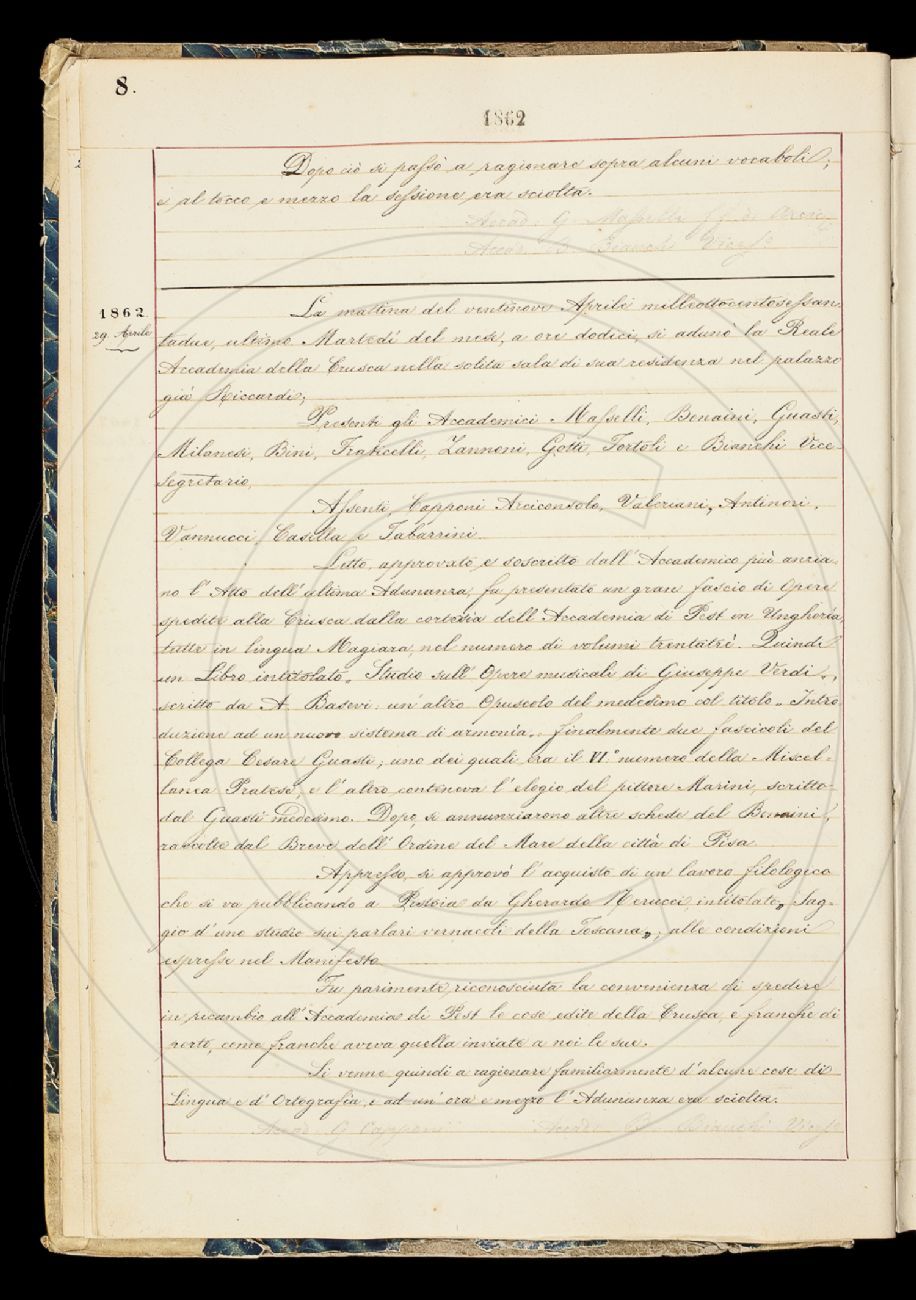 8.
1862
Dopo ciò si passò a ragionare sopra alcuni vocaboli;
e al tocco e mezzo la sessione era sciolta.
Accad. G. Masselli ff. di Arcic.
Accad. B. Bianchi Viceso
1862
29. Aprile
La mattina del ventinove Aprile milleottocentosessan-
tadue, ultimo Martedì del mese, a ore dodici, si adunò la Reale
Accademia della Crusca nella solita sala di sua residenza nel palazzo
già Riccardi;
Presenti gli Accademici Masselli, Bonaini, Guasti,
Milanesi, Bini, Fraticelli, Zannoni, Gotti, Tortoli e Bianchi Vice
Segretario.
Assenti, Capponi Arciconsolo, Valeriani, Antinori,
Vannucci Casella e Tabarrini.
Letto, approvato, e soscritto dall'Accademico più anzia-
no l'Atto dell'ultima Adunanza, fu presentato un gran fascio di Opere
spedite alla Crusca dalla cortesia dell'Accademia di Pest in Ungheria,
tutte in lingua Magiara, nel numero di volumi trentatrè. Quindi
un Libro intitolato „ Studio sull'Opere musicali di Giuseppe Verdi „,
scritto da A. Basevi: un'altro Opuscolo del medesimo col titolo „ Intro
duzione ad un nuovo sistema di armonia„. finalmente due fascicoli del
Collega Cesare Guasti; uno dei quali era il VI.° numero della Miscel-
lanea Pratese, e l'altro conteneva l'elogio del pittore Marini, scritto
dal Guasti medesimo. Dopo, si annunziarono altre schede del Bonaini,
raccolte dal Breve dell'Ordine del Mare della città di Pisa.
Appresso, si approvò l'acquisto di un lavoro filologico
che si va pubblicando a Pistoia da Gherardo Nerucci intitolato „ Sag-
gio d'uno studio sui parlari vernacoli della Toscana„; alle condizioni
espresse nel Manifesto.
Fu parimente, riconosciuta la convenienza di spedire
in ricambio all'Accademia di Pest le cose edite della Crusca, e franche di
porto, come franche aveva quella inviate a noi le sue.
Si venne quindi a ragionare familiarmente d'alcune cose di
Lingua e d'Ortografia, e ad un'ora e mezzo l'Adunanza era sciolta.
Accad. G. Capponi Accad. B. Bianchi Viceso